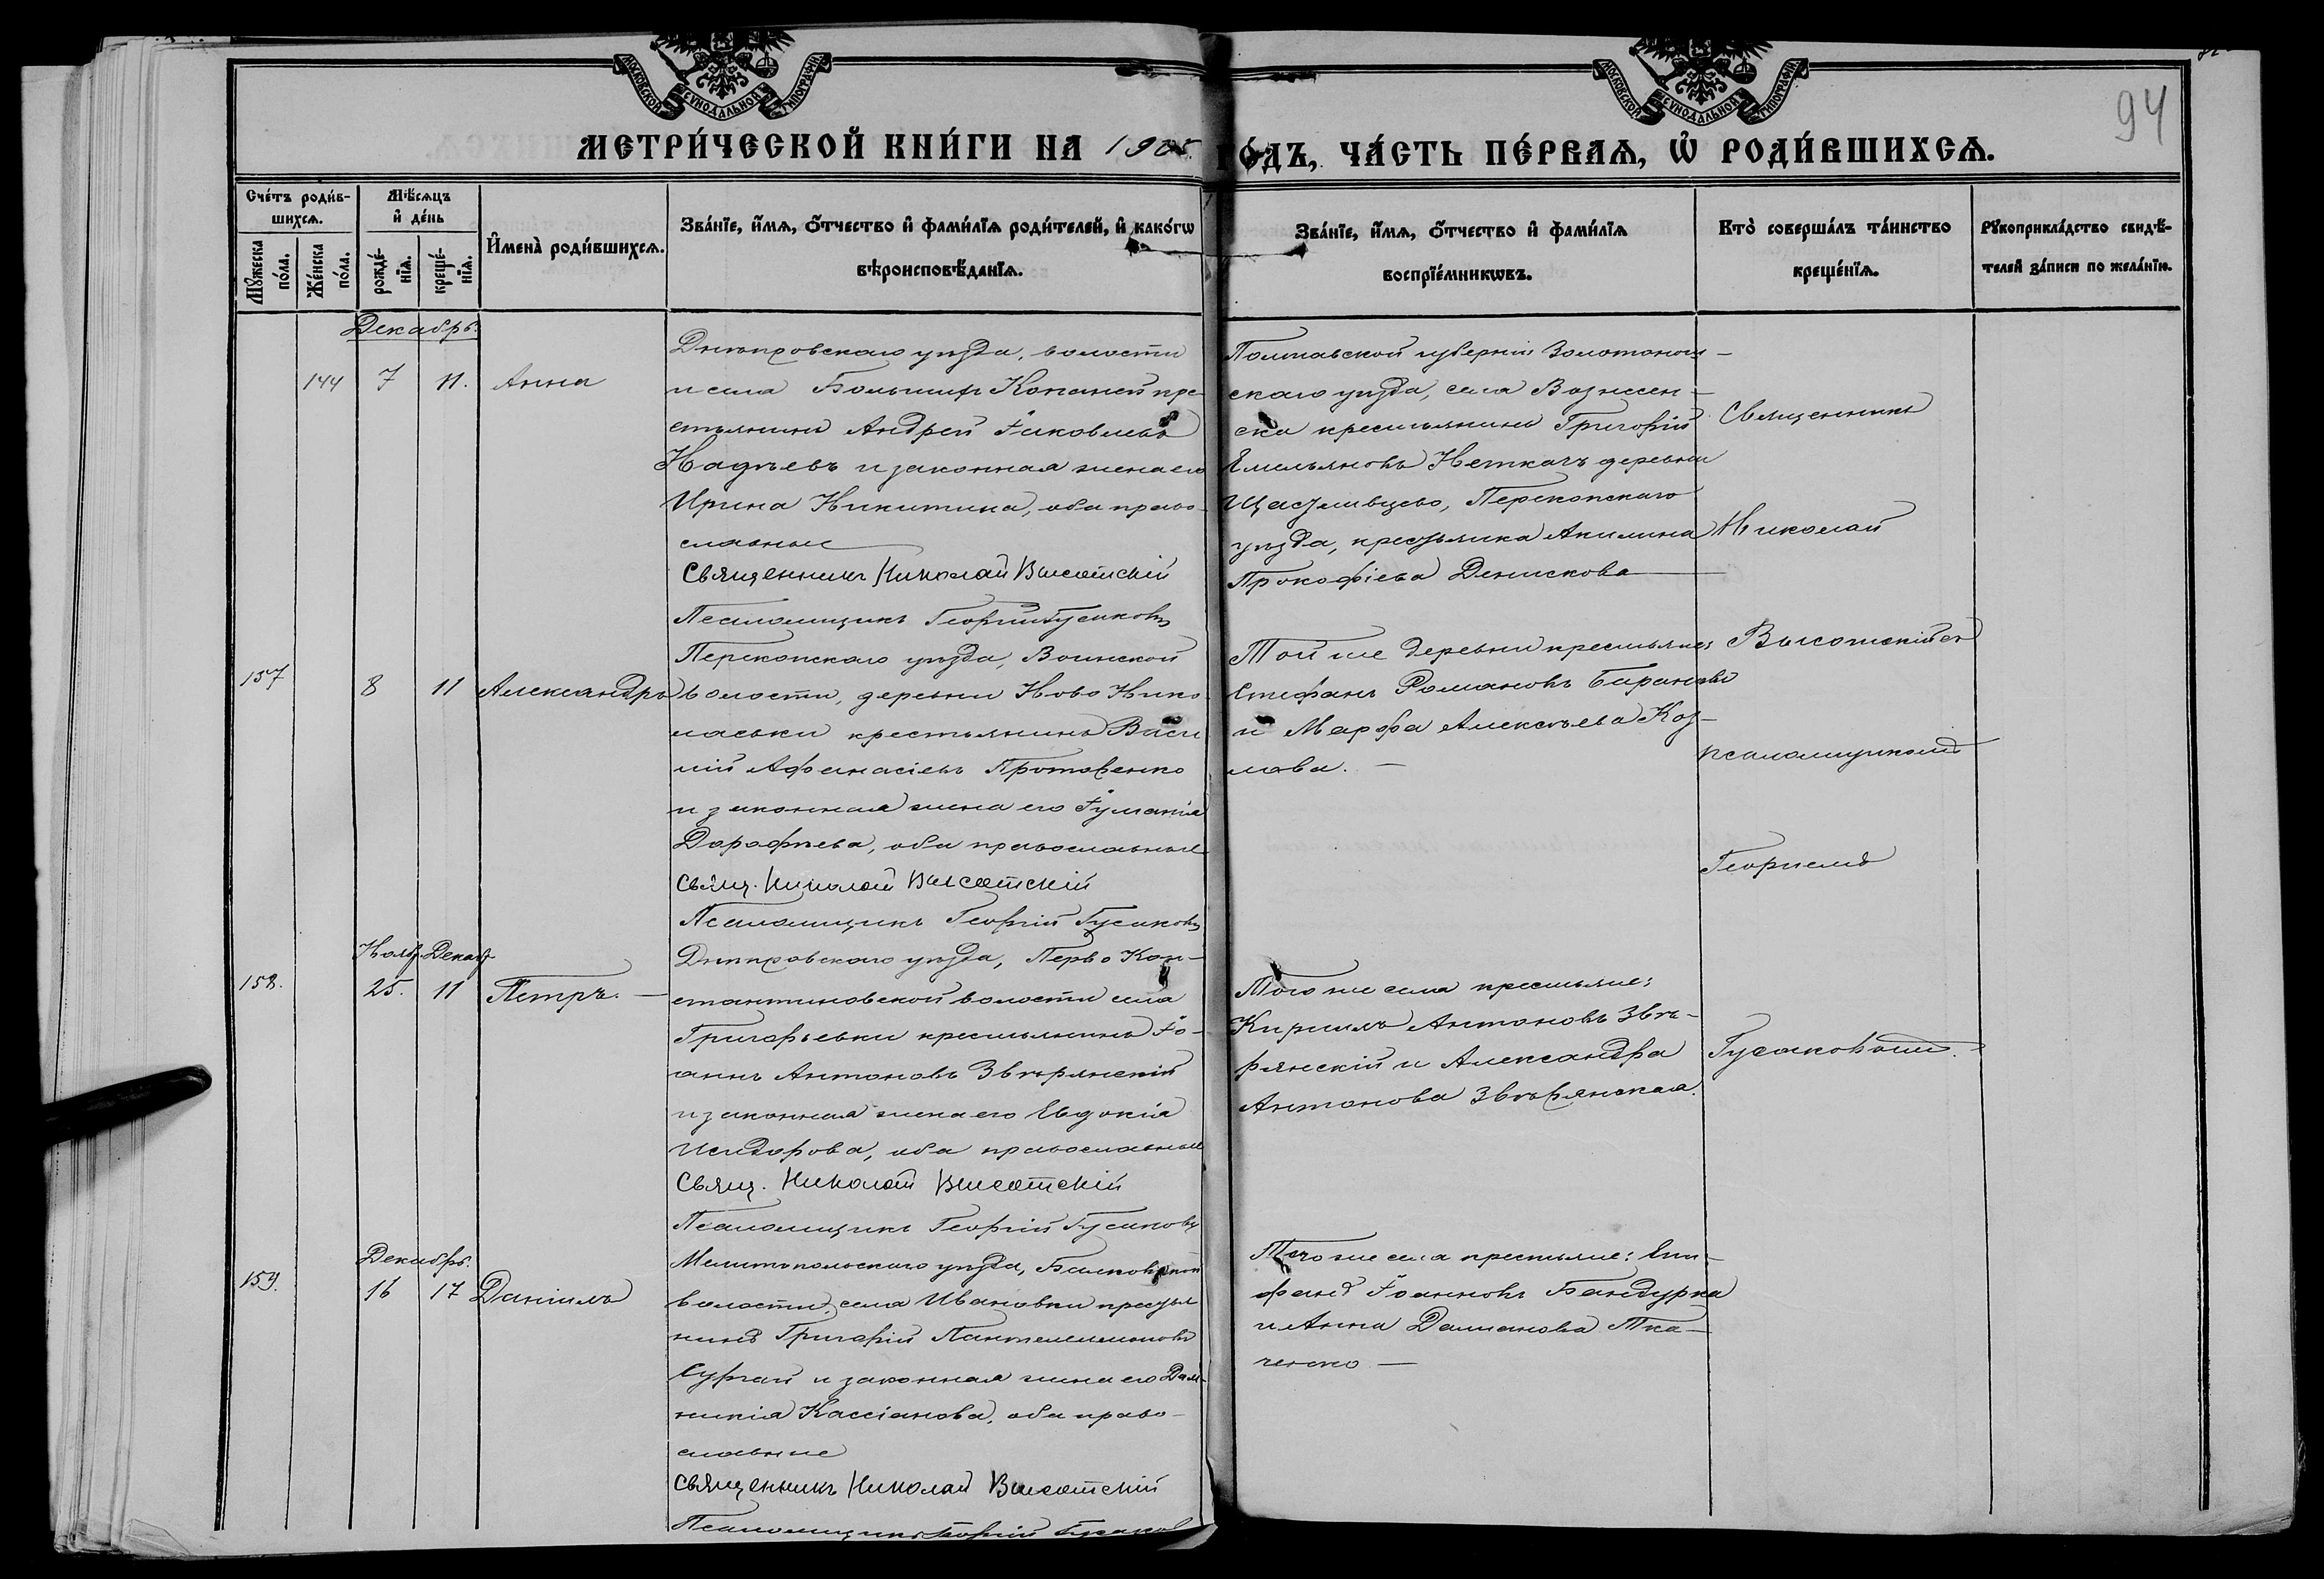 94
МОСКОВСКОЙ СѴНОДАЛЬНОЙ ТИПОГРАФІИ
МОСКОВСКОЙ СѴНОДАЛЬНОЙ ТИПОГРАФІИ
МЕТРИ́ЧЕСКОЙ КНИ́ГИ НА 1905. ГО́ДЪ, ЧА́СТЬ ПЕ́РВАѦ, Ѡ҆ РОДИ́ВШИХСѦ.
Сче́тъ роди́в-
шихсѧ.
Мꙋ́жеска по́ла.
Же́нска по́ла.
Мѣ́сѧцъ
и҆ де́нь
рожде́-
нїѧ.
креще́-
нїѧ.
И҆мена̀ роди́вшихсѧ.
Зва́нїе, и҆́мѧ, ѻ҆́тчество и҆ фами́лїѧ роди́телей, и҆ како́гѡ
вѣроисповѣ́данїѧ.
Зва́нїе, и҆́мѧ, ѻ҆́тчество и҆ фами́лїѧ
воспрїе́мникѡвъ.
Кто̀ соверша́лъ та́инство
креще́нїѧ.
Рꙋкоприкла́дство свидѣ́-
телей за́писи по жела́нїю.
Декабрь.
144 7 11. Анна
Днѣпровскаго уѣзда, волости
и села Большихъ Копаней кре-
стьянинъ Андрей Іаковлевъ
Надѣевъ и законная жена его
Ирина Никитина, оба право-
славные
Священникъ Николай Высотскій
Псаломщикъ Георгій Гусаковъ
Полтавской губерніи Золотонош-
скаго уѣзда, села Вознесен-
ска крестьянинъ Григорій
Емельяновъ Неткачъ деревни
Щасливцево, Перекопскаго
уѣзда, крестьянка Акилина
Прокофіева Денискова
Священникъ
Николай
Высотскій съ
псаломщикомъ
Георгіемъ
Гусаковымъ.
157 8 11 Александръ
Перекопскаго уѣзда, Воинской
волости, деревни Ново Нико-
лаевки крестьянинъ Васи
лій Афанасіевъ Протовенко
и законная жена его Іуліанія
Дорофѣева, оба православные
Свящ. Николай Высотскій
Псаломщикъ Георгій Гусаковъ
Той же деревни крестьяне:
Стефанъ Романовъ Барановъ
и Марфа Алексѣева Коз-
лова.
Нояб. Декаб.
158. 25. 11 Петръ.
Днѣпровскаго уѣзда, Перво Кон-
стантиновской волости села
Григорьевки крестьянинъ Іо-
аннъ Антоновъ Звѣрянскій
и законная жена его Евдокія
Исидорова, оба православные
Свящ. Николай Высотскій
Псаломщикъ Георгій Гусаковъ
Того же села крестьяне:
Кириллъ Антоновъ Звѣ-
рянскій и Александра
Антонова Звѣрянская.
Декабрь.
159. 16 17 Даніилъ
Мелитопольскаго уѣзда, Балковской
волости, села Ивановки крестья
нинъ Григорій Пантелеимоновъ
Сургай и законная жена его Дом-
никія Кассіанова, оба право-
славные
Священникъ Николай Высотскій
Псаломщикъ Георгій Гусаков
Того же села крестьяне: Епи-
фанъ Іоанновъ Бандурка
и Анна Даміанова Тка-
ченко